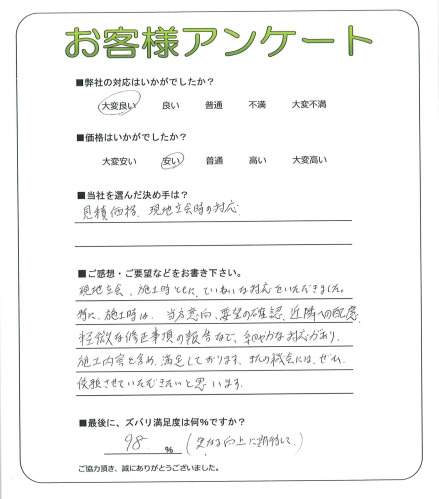 お客様アンケート
■弊社の対応はいかがでしたか？
大変良い 良い 普通 不満 大変不満
■価格はいかがでしたか？
大変安い 安い 普通 高い 大変高い
■当社を選んだ決め手は？
見積価格、現地立会時の対応
■ご感想・ご要望などをお書き下さい。
現地立会、施工時ともに、ていねいな対応をいただきました。
特に、施工時は、当方意向、要望の確認、近隣への配慮、
軽微な修正事項の報告など、細やかな対応があり、
施工内容を含め、満足しております。またの機会には、ぜひ
依頼させていただきたいと思います。
■最後に、ズバリ満足度は何%ですか？
98 % (更なる向上に期待して。)
ご協力頂き、誠にありがとうございました。